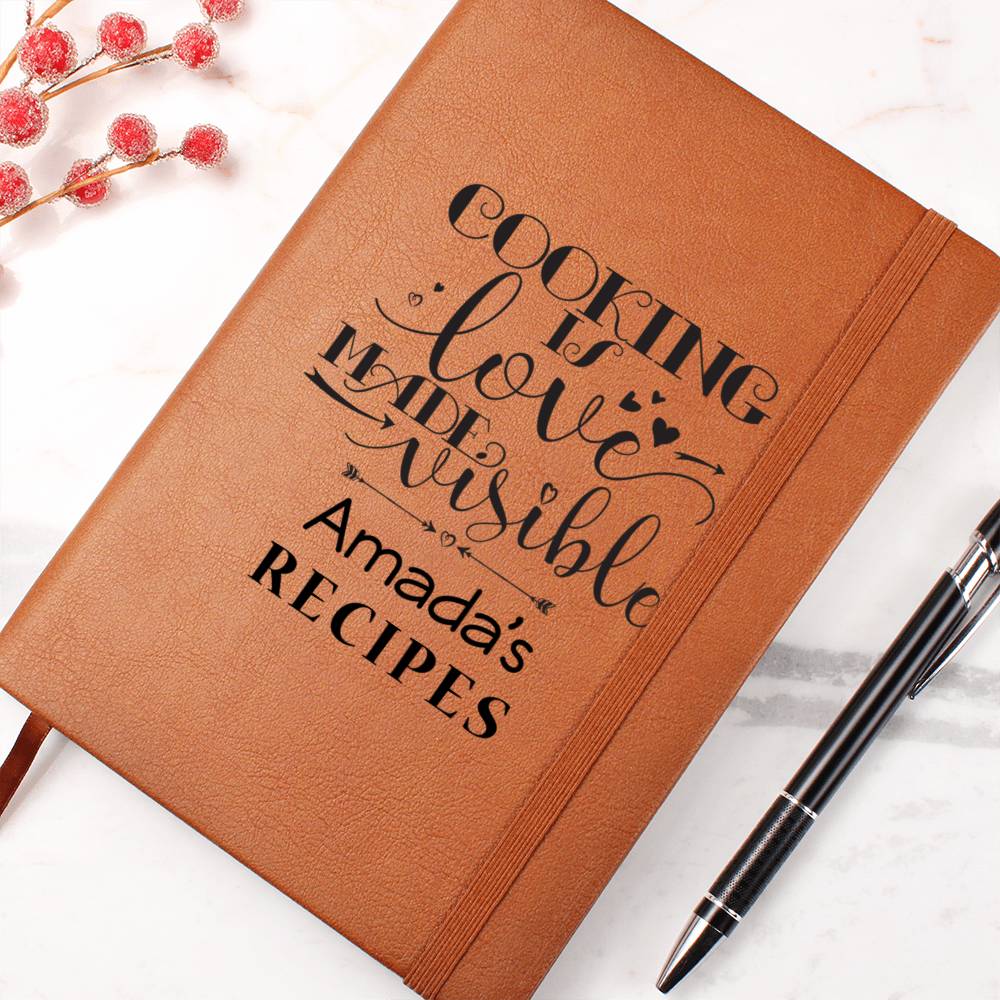 COOKING
IS
love
MADE
visible
Amada's
RECIPES